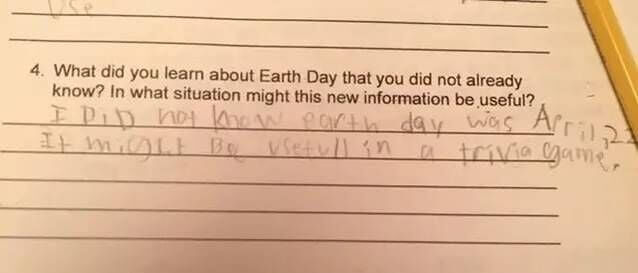 use
4. What did you learn about Earth Day that you did not already
know? In what situation might this new information be useful?
I DiD not know earth day was April, 22
It might Be usefull in a trivia game.